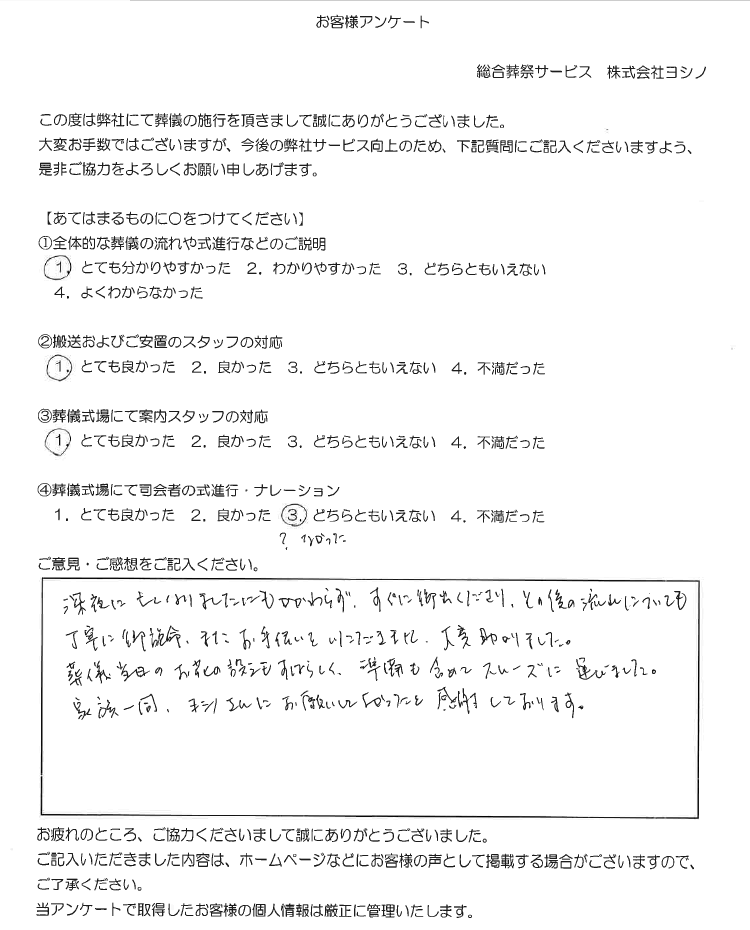 お客様アンケート
総合葬祭サービス　株式会社ヨシノ
この度は弊社にて葬儀の施行を頂きまして誠にありがとうございました。
大変お手数ではございますが、今後の弊社サービス向上のため、下記質問にご記入くださいますよう、
是非ご協力をよろしくお願い申しあげます。
【あてはまるものに〇をつけてください】
①全体的な葬儀の流れや式進行などのご説明
1．とても分かりやすかった　2．わかりやすかった　3．どちらともいえない
4．よくわからなかった
②搬送およびご安置のスタッフの対応
1．とても良かった　2．良かった　3．どちらともいえない　4．不満だった
③葬儀式場にて案内スタッフの対応
1．とても良かった　2．良かった　3．どちらともいえない　4．不満だった
④葬儀式場にて司会者の式進行・ナレーション
1．とても良かった　2．良かった　3．どちらともいえない　4．不満だった
？ なかった
ご意見・ご感想をご記入ください。
深夜に ましたにもかかわらず、すぐに御出くださり、その後の流れについても
丁寧に御説明、またお手伝いをいただきまして、大変助かりました。
葬儀当日のお花の設えもすばらしく、準備も含めてスムーズに運びました。
家族一同、ヨシノさんにお願いしてよかったと感謝しております。
お疲れのところ、ご協力くださいまして誠にありがとうございました。
ご記入いただきました内容は、ホームページなどにお客様の声として掲載する場合がございますので、
ご了承ください。
当アンケートで取得したお客様の個人情報は厳正に管理いたします。